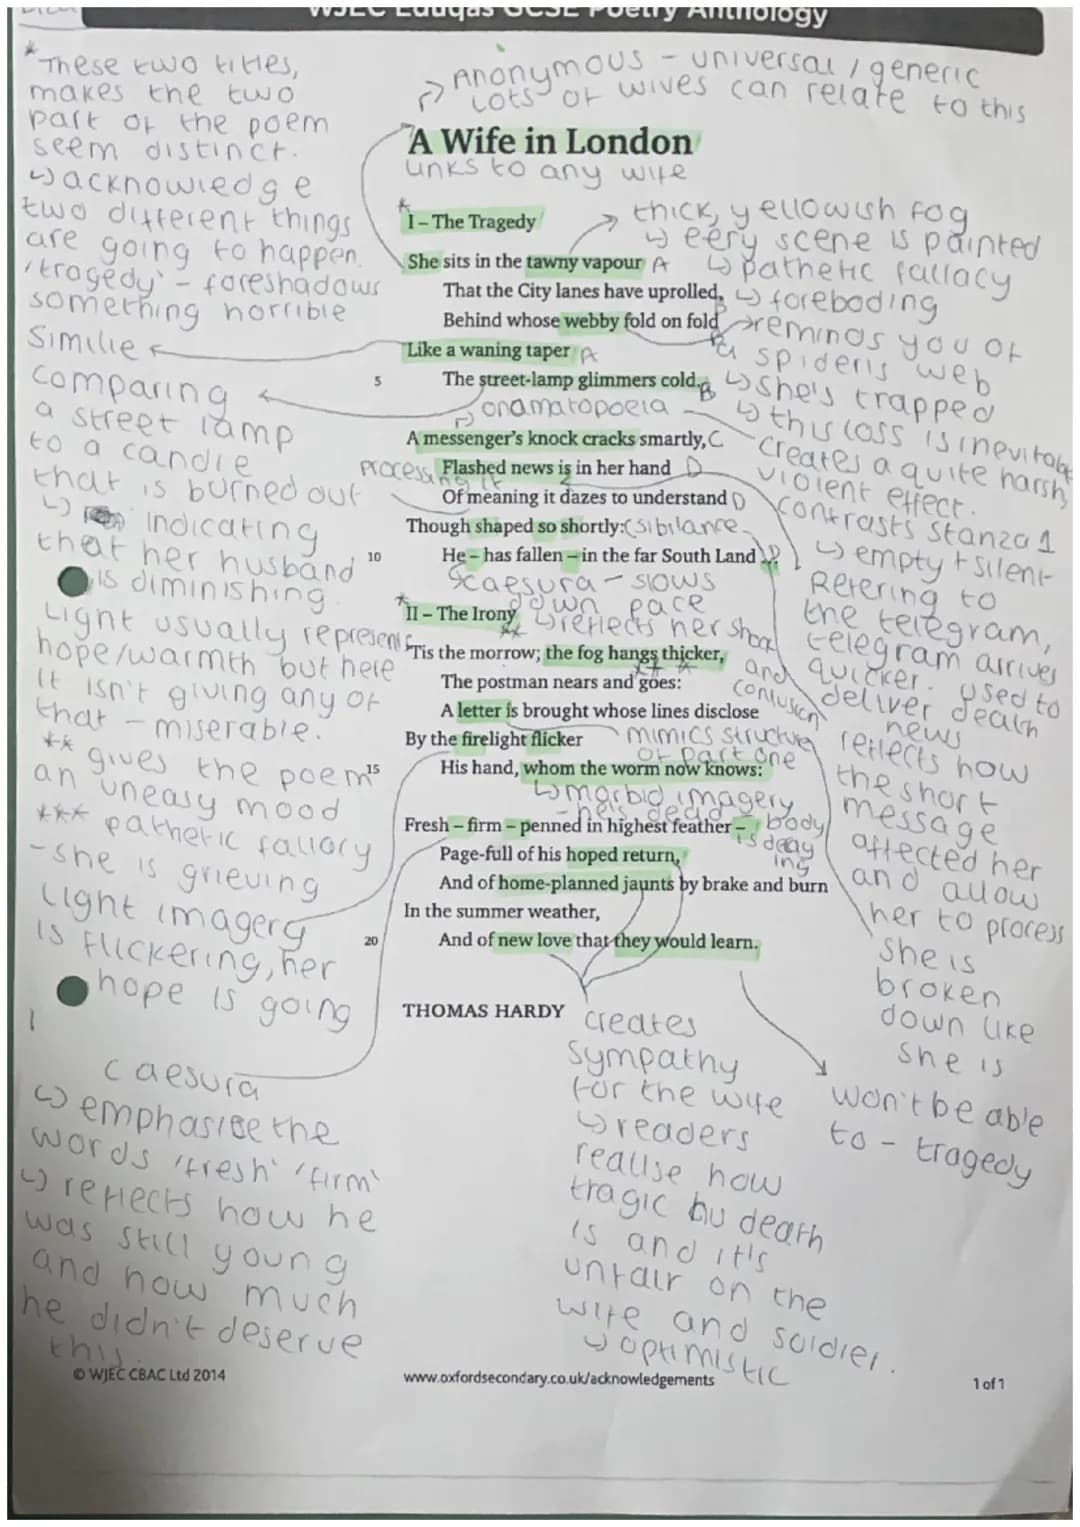 WJEC Eduqas GCSE Poetry Anthology
*These two titles,
makes the two
part of the poem
seem distinct.
↳ acknowledge
two different things
are going to happen.
'tragedy' - foreshadows
something horrible
Similie
comparing
a street lamp
to a candle
that is burned out
↳ indicating
that her husband
is diminishing.
Light usually represents
hope/warmth but here
it isn't giving any of
that - miserable.
** gives the poem
an uneasy mood
*** pathetic fallory
- she is grieving
Light imagery
is flickering, her
hope is going
caesura
↳ emphasise the
words 'fresh' 'firm'
↳ reflects how he
was still young
and how much
he didn't deserve
this.
Anonymous - universal / generic
Lots of wives can relate to this
A Wife in London
links to any wife
*
I – The Tragedy
She sits in the tawny vapour A
That the City lanes have uprolled, B
Behind whose webby fold on fold B
Like a waning taper A
5 The street-lamp glimmers cold. B
onamatopoeia
A messenger's knock cracks smartly, C
processing it
Flashed news is in her hand D
Of meaning it dazes to understand D
Though shaped so shortly: (sibilance
10 He – has fallen – in the far South Land
caesura - slows
down pace
↳ reflects her shock
and
confusion
*
II – The Irony
**
'Tis the morrow; the fog hangs thicker,
***
The postman nears and goes:
A letter is brought whose lines disclose
By the firelight flicker
mimics structure
of part one
15 His hand, whom the worm now knows:
↳ morbid imagery
- he's dead - body
is decaying
Fresh – firm – penned in highest feather –
Page-full of his hoped return,
And of home-planned jaunts by brake and burn
In the summer weather,
20 And of new love that they would learn.
THOMAS HARDY
thick, yellowish fog
↳ eery scene is painted
↳ pathetic fallacy
↳ foreboding
reminds you of
a spider's web
↳ she's trapped
↳ this loss is inevitable
creates a quite harsh,
violent effect.
contrasts stanza 1
↳ empty + silent
Refering to
the telegram,
telegram arrives
quicker. used to
deliver death
news
reflects how
the short
message
affected her
and allow
her to process
she is
broken
down like
she is
creates
sympathy
for the wife
↳ readers
realise how
tragic hu death
is and it's
unfair on the
wife and soldier.
↳ optimistic
won't be able
to - tragedy
© WJEC CBAC Ltd 2014
www.oxfordsecondary.co.uk/acknowledgements
1 of 1